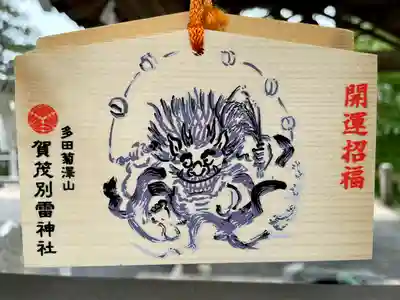 開運招福
多田菊澤山
賀茂別雷神社